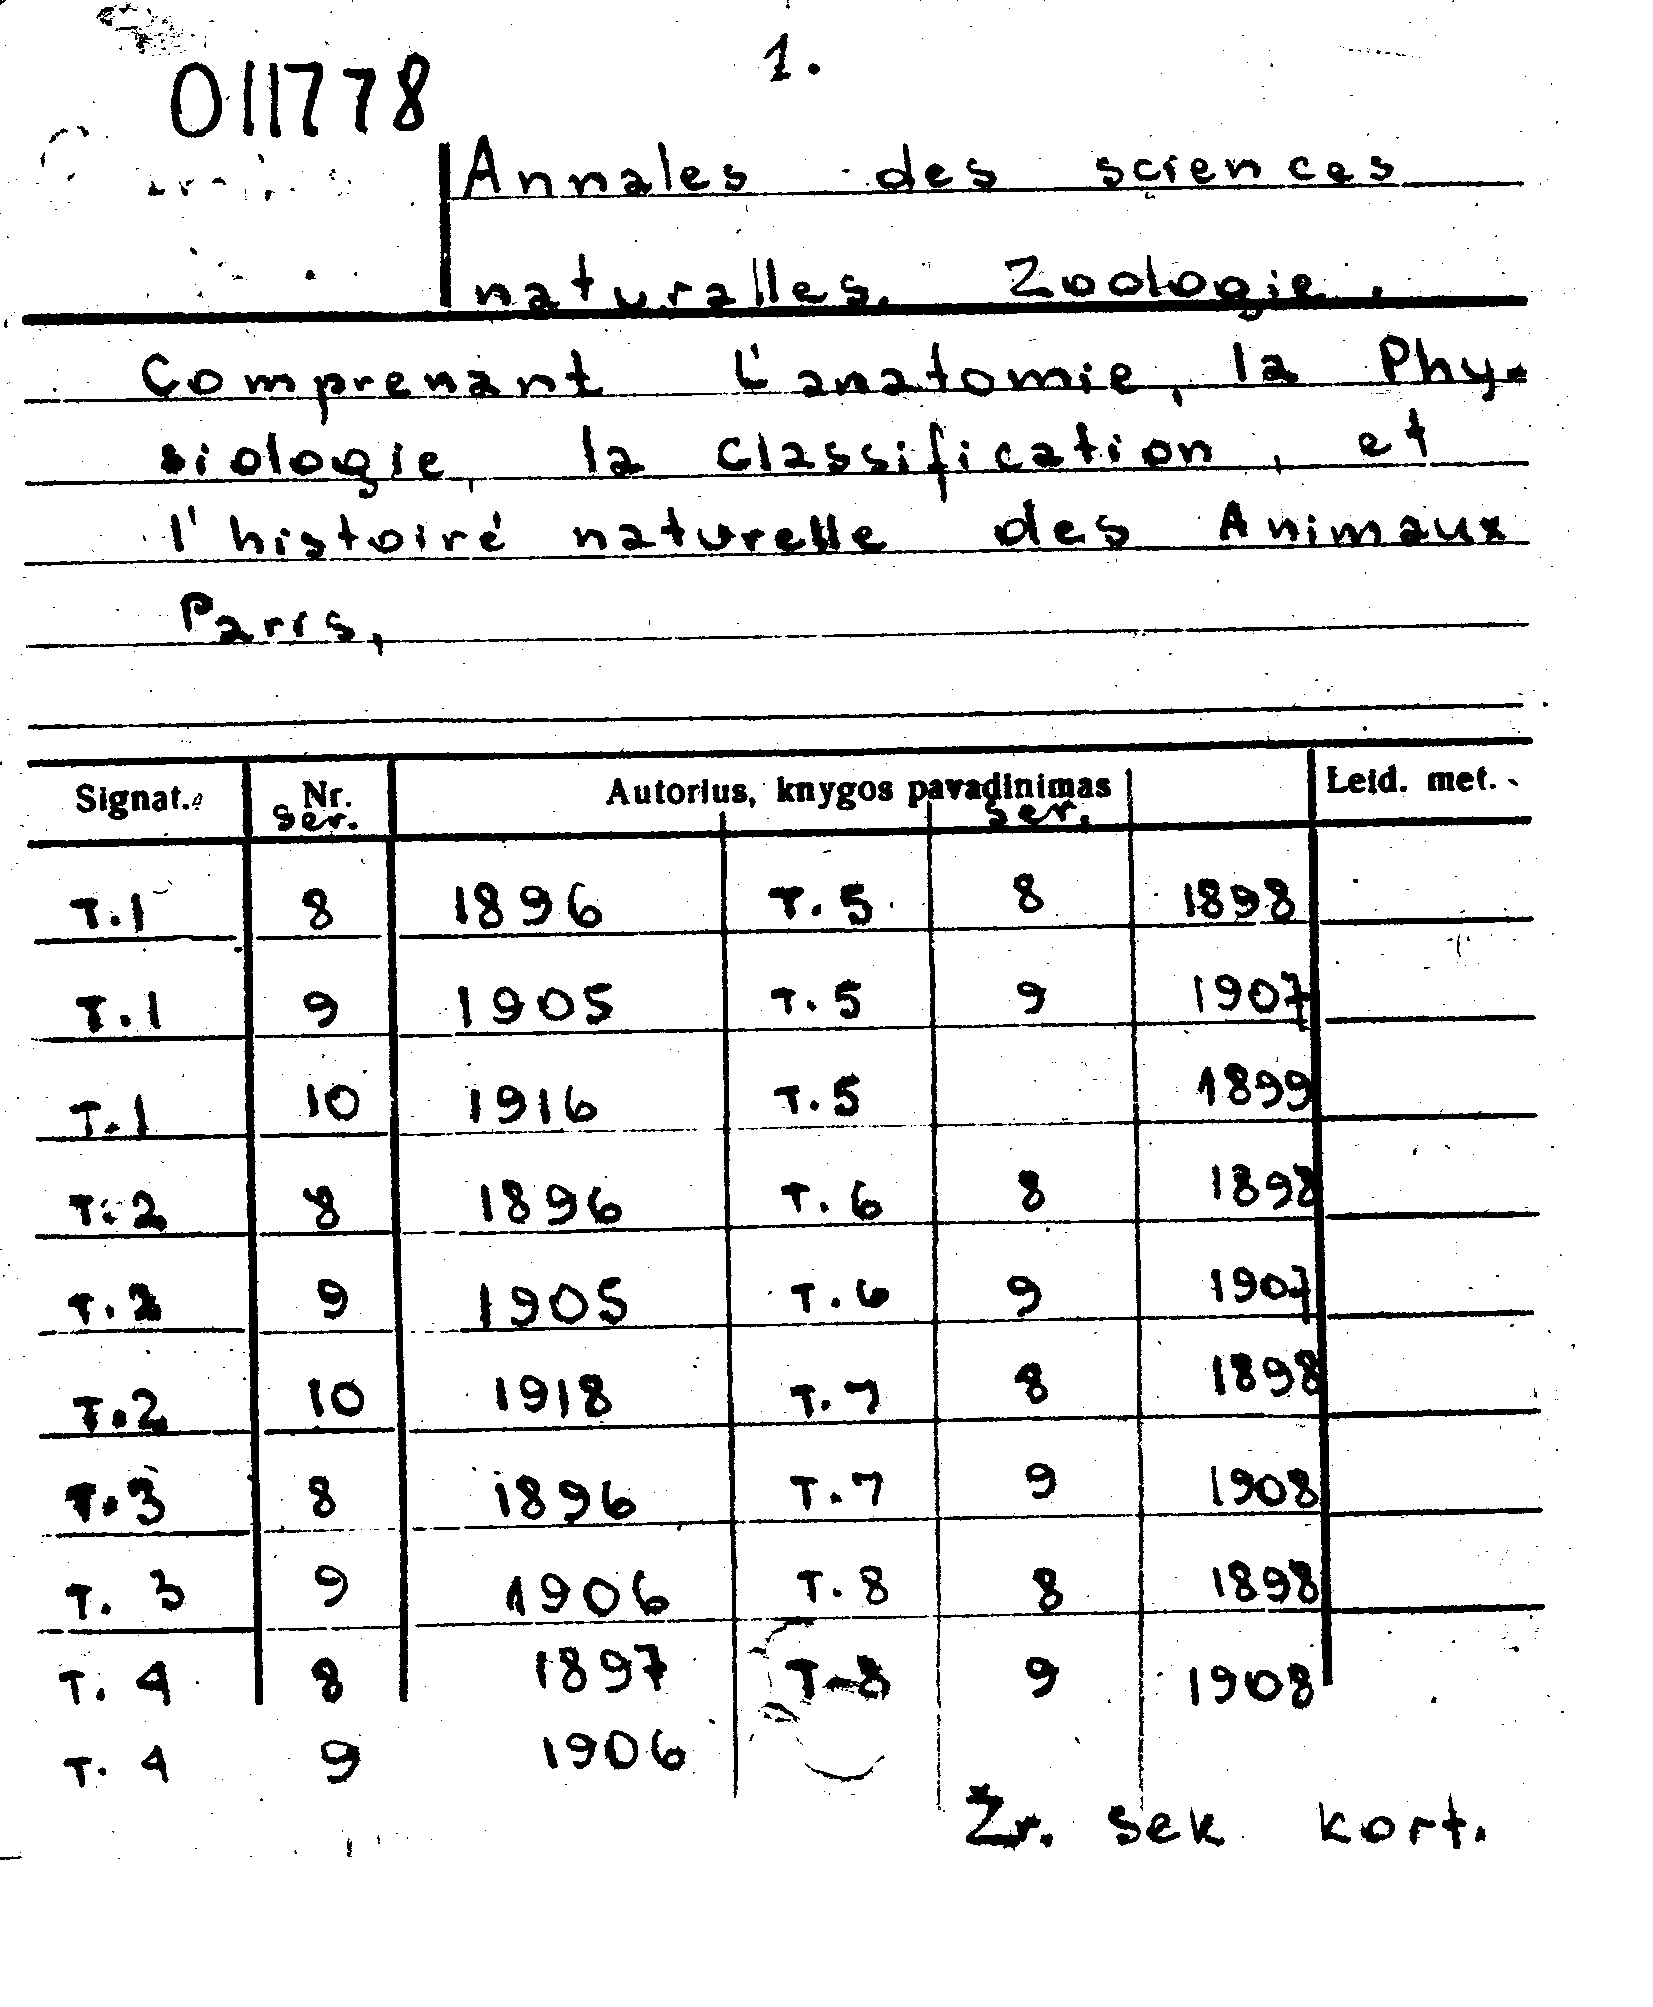 1.
011778
Annales des sciences
naturalles. Zoologie.
Comprenant L'anatomie, la Phy-
siologie, la classification, et
l'histoiré naturelle des Animaux
Paris,
Signat. Nr. ser. Autorius, knygos pavadinimas ser. Leid. met.
T.1 8 1896 T.5 8 1898
T.1 9 1905 T.5 9 1907
T.1 10 1916 T.5 1899
T.2 8 1896 T.6 8 1898
T.2 9 1905 T.6 9 1907
T.2 10 1918 T.7 8 1898
T.3 8 1896 T.7 9 1908
T. 3 9 1906 T.8 8 1898
T. 4 8 1897 T-8 9 1908
T. 4 9 1906
Žr. sek kort.